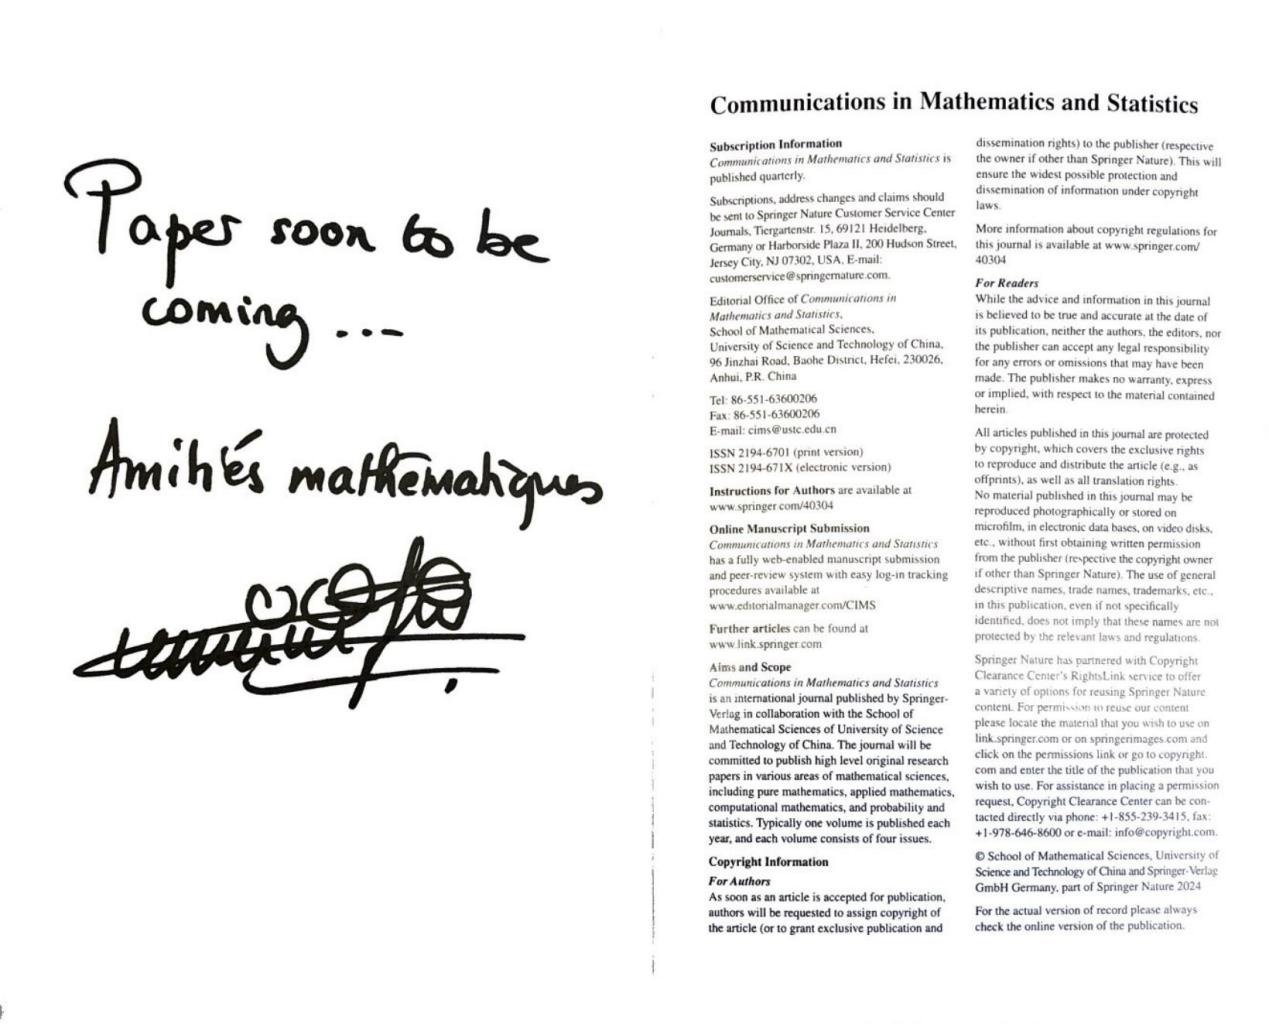 Paper soon to be
coming ...
Amitiés mathématiques
Communications in Mathematics and Statistics
Subscription Information
Communications in Mathematics and Statistics is
published quarterly.
Subscriptions, address changes and claims should
be sent to Springer Nature Customer Service Center
Journals, Tiergartenstr. 15, 69121 Heidelberg,
Germany or Harborside Plaza II, 200 Hudson Street,
Jersey City, NJ 07302, USA. E-mail:
customerservice@springernature.com.
Editorial Office of Communications in
Mathematics and Statistics,
School of Mathematical Sciences,
University of Science and Technology of China,
96 Jinzhai Road, Baohe District, Hefei, 230026,
Anhui, P.R. China
Tel: 86-551-63600206
Fax: 86-551-63600206
E-mail: cims@ustc.edu.cn
ISSN 2194-6701 (print version)
ISSN 2194-671X (electronic version)
Instructions for Authors are available at
www.springer.com/40304
Online Manuscript Submission
Communications in Mathematics and Statistics
has a fully web-enabled manuscript submission
and peer-review system with easy log-in tracking
procedures available at
www.editorialmanager.com/CIMS
Further articles can be found at
www.link.springer.com
Aims and Scope
Communications in Mathematics and Statistics
is an international journal published by Springer-
Verlag in collaboration with the School of
Mathematical Sciences of University of Science
and Technology of China. The journal will be
committed to publish high level original research
papers in various areas of mathematical sciences,
including pure mathematics, applied mathematics,
computational mathematics, and probability and
statistics. Typically one volume is published each
year, and each volume consists of four issues.
Copyright Information
For Authors
As soon as an article is accepted for publication,
authors will be requested to assign copyright of
the article (or to grant exclusive publication and
dissemination rights) to the publisher (respective
the owner if other than Springer Nature). This will
ensure the widest possible protection and
dissemination of information under copyright
laws.
More information about copyright regulations for
this journal is available at www.springer.com/
40304
For Readers
While the advice and information in this journal
is believed to be true and accurate at the date of
its publication, neither the authors, the editors, nor
the publisher can accept any legal responsibility
for any errors or omissions that may have been
made. The publisher makes no warranty, express
or implied, with respect to the material contained
herein.
All articles published in this journal are protected
by copyright, which covers the exclusive rights
to reproduce and distribute the article (e.g., as
offprints), as well as all translation rights.
No material published in this journal may be
reproduced photographically or stored on
microfilm, in electronic data bases, on video disks,
etc., without first obtaining written permission
from the publisher (respective the copyright owner
if other than Springer Nature). The use of general
descriptive names, trade names, trademarks, etc.,
in this publication, even if not specifically
identified, does not imply that these names are not
protected by the relevant laws and regulations.
Springer Nature has partnered with Copyright
Clearance Center's RightsLink service to offer
a variety of options for reusing Springer Nature
content. For permission to reuse our content
please locate the material that you wish to use on
link.springer.com or on springerimages.com and
click on the permissions link or go to copyright.
com and enter the title of the publication that you
wish to use. For assistance in placing a permission
request, Copyright Clearance Center can be con-
tacted directly via phone: +1-855-239-3415, fax:
+1-978-646-8600 or e-mail: info@copyright.com.
© School of Mathematical Sciences, University of
Science and Technology of China and Springer-Verlag
GmbH Germany, part of Springer Nature 2024
For the actual version of record please always
check the online version of the publication.